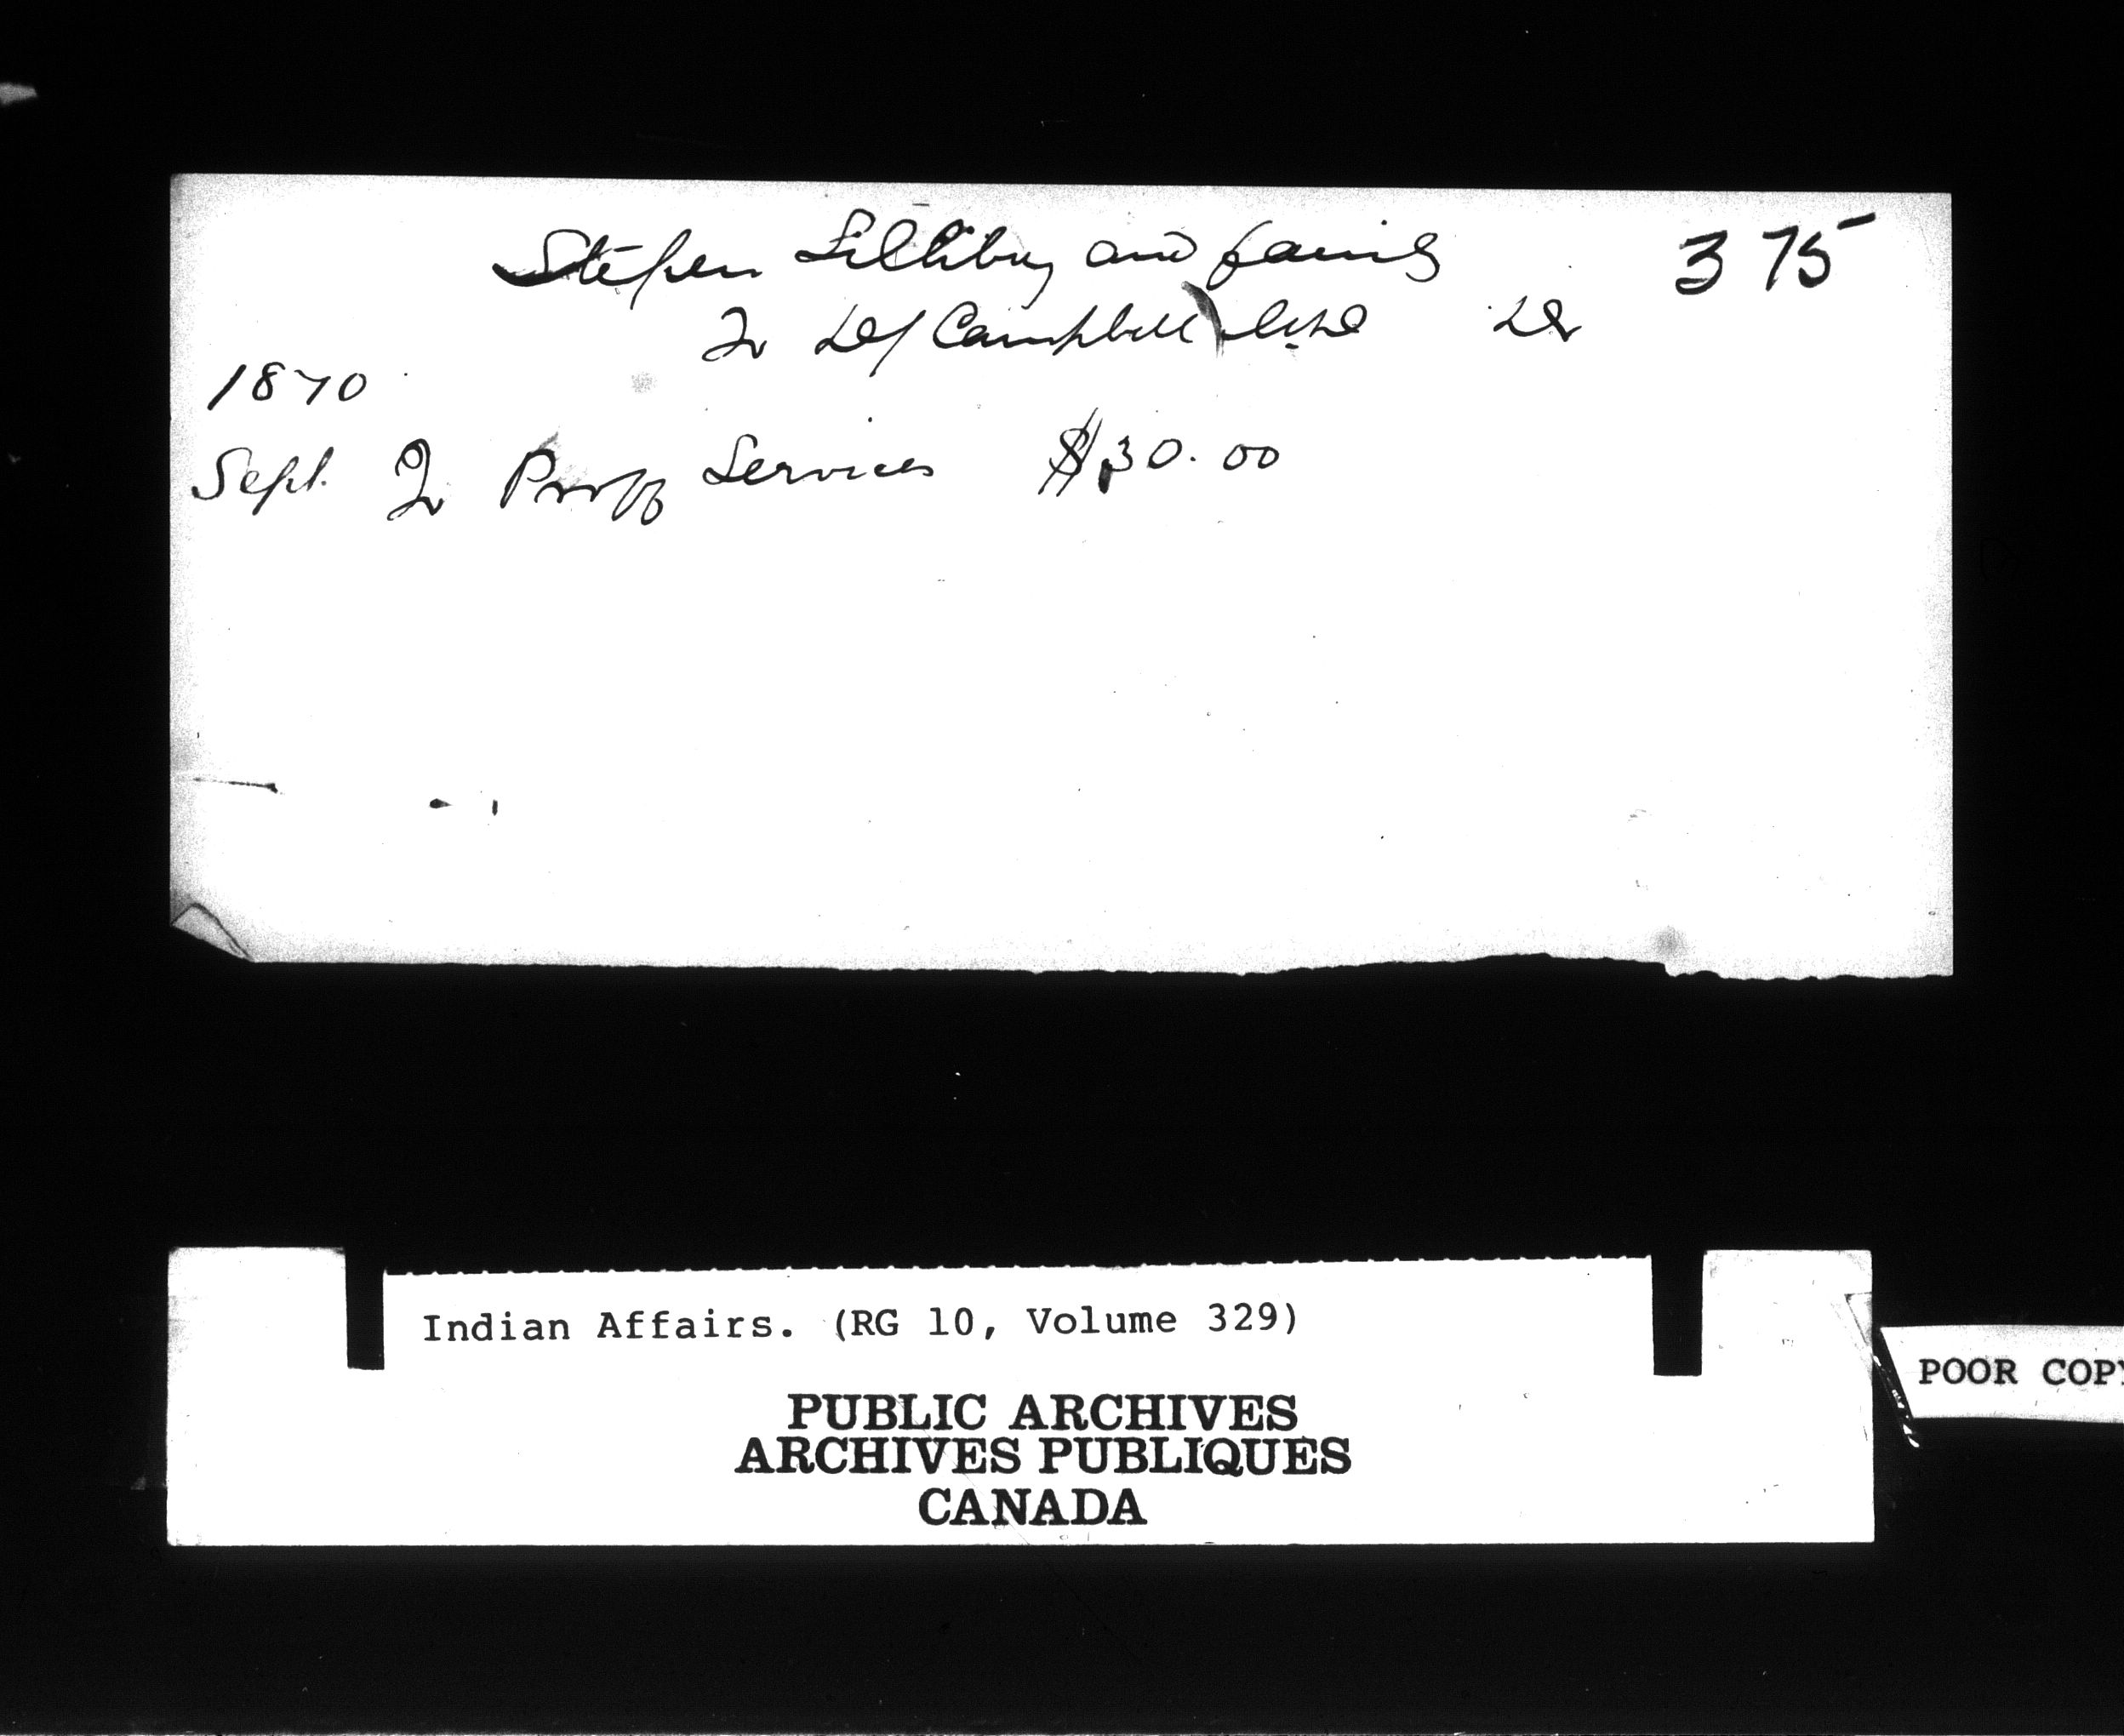 Stephen and family 375
To D/ Campbell Dr
1870
Sept. To Proff Services $30.00
Indian Affairs. (RG 10, Volume 329)
PUBLIC ARCHIVES
ARCHIVES PUBLIQUES
CANADA
POOR COPY